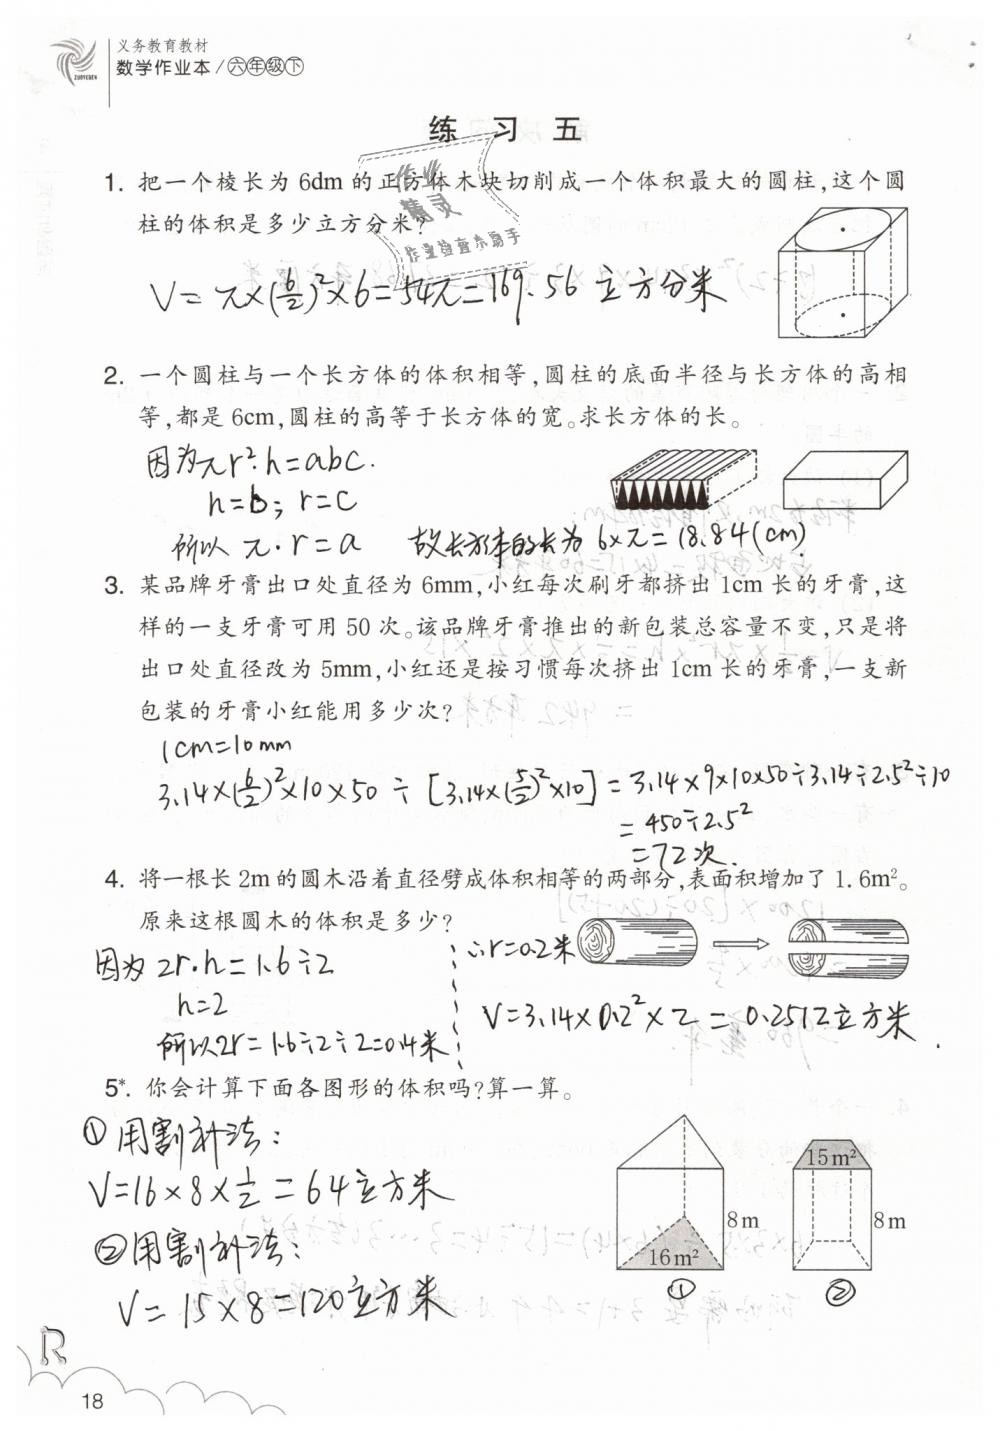 义务教育教材
数学作业本/六年级下
ZUOYEBEN
练 习 五
作业
精灵
作业检查小助手
1. 把一个棱长为 6dm 的正方体木块切削成一个体积最大的圆柱,这个圆
柱的体积是多少立方分米?
V=π×(6/2)²×6=54π=169.56 立方分米
2. 一个圆柱与一个长方体的体积相等,圆柱的底面半径与长方体的高相
等,都是 6cm,圆柱的高等于长方体的宽。求长方体的长。
因为πr²·h=abc.
h=b; r=c
所以 π·r=a 故长方体的长为 6×π=18.84(cm)
3. 某品牌牙膏出口处直径为 6mm,小红每次刷牙都挤出 1cm 长的牙膏,这
样的一支牙膏可用 50 次。该品牌牙膏推出的新包装总容量不变,只是将
出口处直径改为 5mm,小红还是按习惯每次挤出 1cm 长的牙膏,一支新
包装的牙膏小红能用多少次?
1cm=10mm
3.14×(6/2)²×10×50÷[3.14×(5/2)²×10]=3.14×9×10×50÷3.14÷2.5²÷10
=450÷2.5²
=72次.
4. 将一根长 2m 的圆木沿着直径劈成体积相等的两部分,表面积增加了 1.6m²。
原来这根圆木的体积是多少?
因为 2r·h=1.6÷2
h=2
所以2r=1.6÷2÷2=0.4米
∴r=0.2米
V=3.14×0.2²×2=0.2512立方米
5*. 你会计算下面各图形的体积吗?算一算。
①用割补法:
V=16×8×1/2=64立方米
②用割补法:
V=15×8=120立方米
16m²
8m
①
15m²
8m
②
R
18